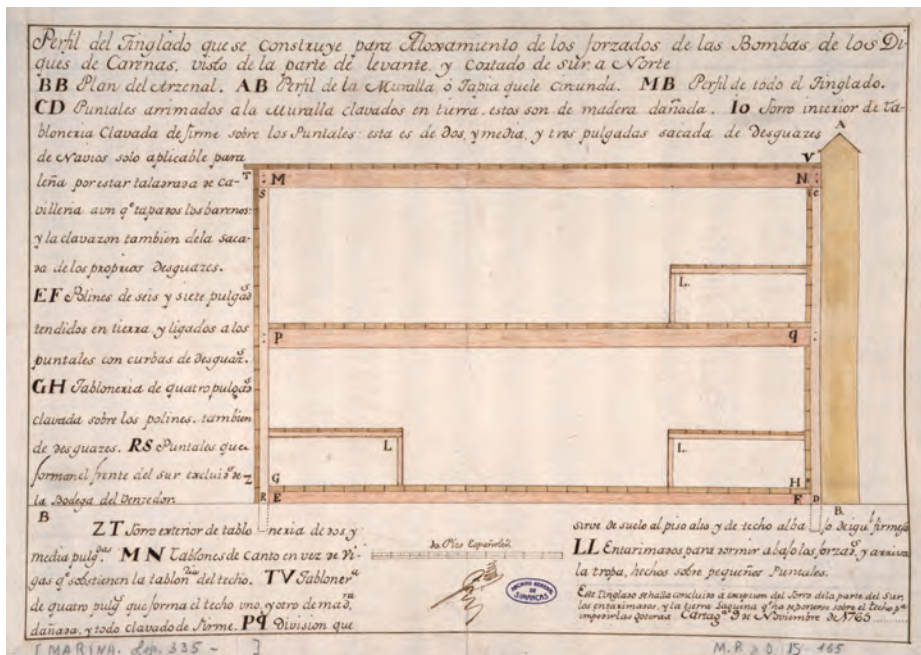 Perfil del Tinglado que se construye para Aloxamiento de los forzados de las Bombas de los Di
ques de Carenas, visto de la parte de levante y cortado de sur a Norte
BB Plan del Arzenal. AB Perfil de la Muralla ó Tapia quele circunda. MB Perfil de todo el Tinglado.
CD Puntales arrimados ala Muralla clavados en tierra, estos son de madera dañada. Io Forro interior de ta-
bloneria Clavada de firme sobre los Puntales: esta es de dos, y media, y tres pulgadas sacada de Desguazes
de Navios solo aplicable para
leña por estar taladrada de Ca-
villeria aun qe tapados los barenos:
y la clavazon tambien dela saca-
da de los proprios Desguazes.
EF Polines de seis y siete pulgads
tendidos en tierra y ligados a los
puntales con curbas de desguaz.
GH Tabloneria de quatro pulgads
clavada sobre los polines, tambien
de desguazes. RS Puntales que
forman el frente del sur excluido de
la Bodega del
A
V
T
M
N
S
C
L.
P
q
L
L.
Z
G
H
R
E
F
D
B
B.
ZT Forro exterior de tablo neria de dos y
media pulgdas MN Tablones de Canto en vez de Vi-
gas qe sobstienen la tablonria del techo. TV Tablonera
de quatro pulgs que forma el techo uno, y otro de madra
dañada, y todo clavado de firme. Pq Division que
10 Pies Españoles
ARCHIVO GENERAL DE SIMANCAS
sirve de suelo al piso alto y de techo alba fo de igul firmeza
LL Entarimados para dormir abajo los forzads, y arriva
la tropa, hechos sobre pequeños Puntales.
Este Tinglado se halla concluido a excepcion del forro dela parte del sur,
los entarimados, y la tierra qe ha de ponerse sobre el techo pa
impedir las goteras Cartaga 9 de Noviembre de 1765
[MARINA. Leg. 335 - ]
M.P. y D. 15-165